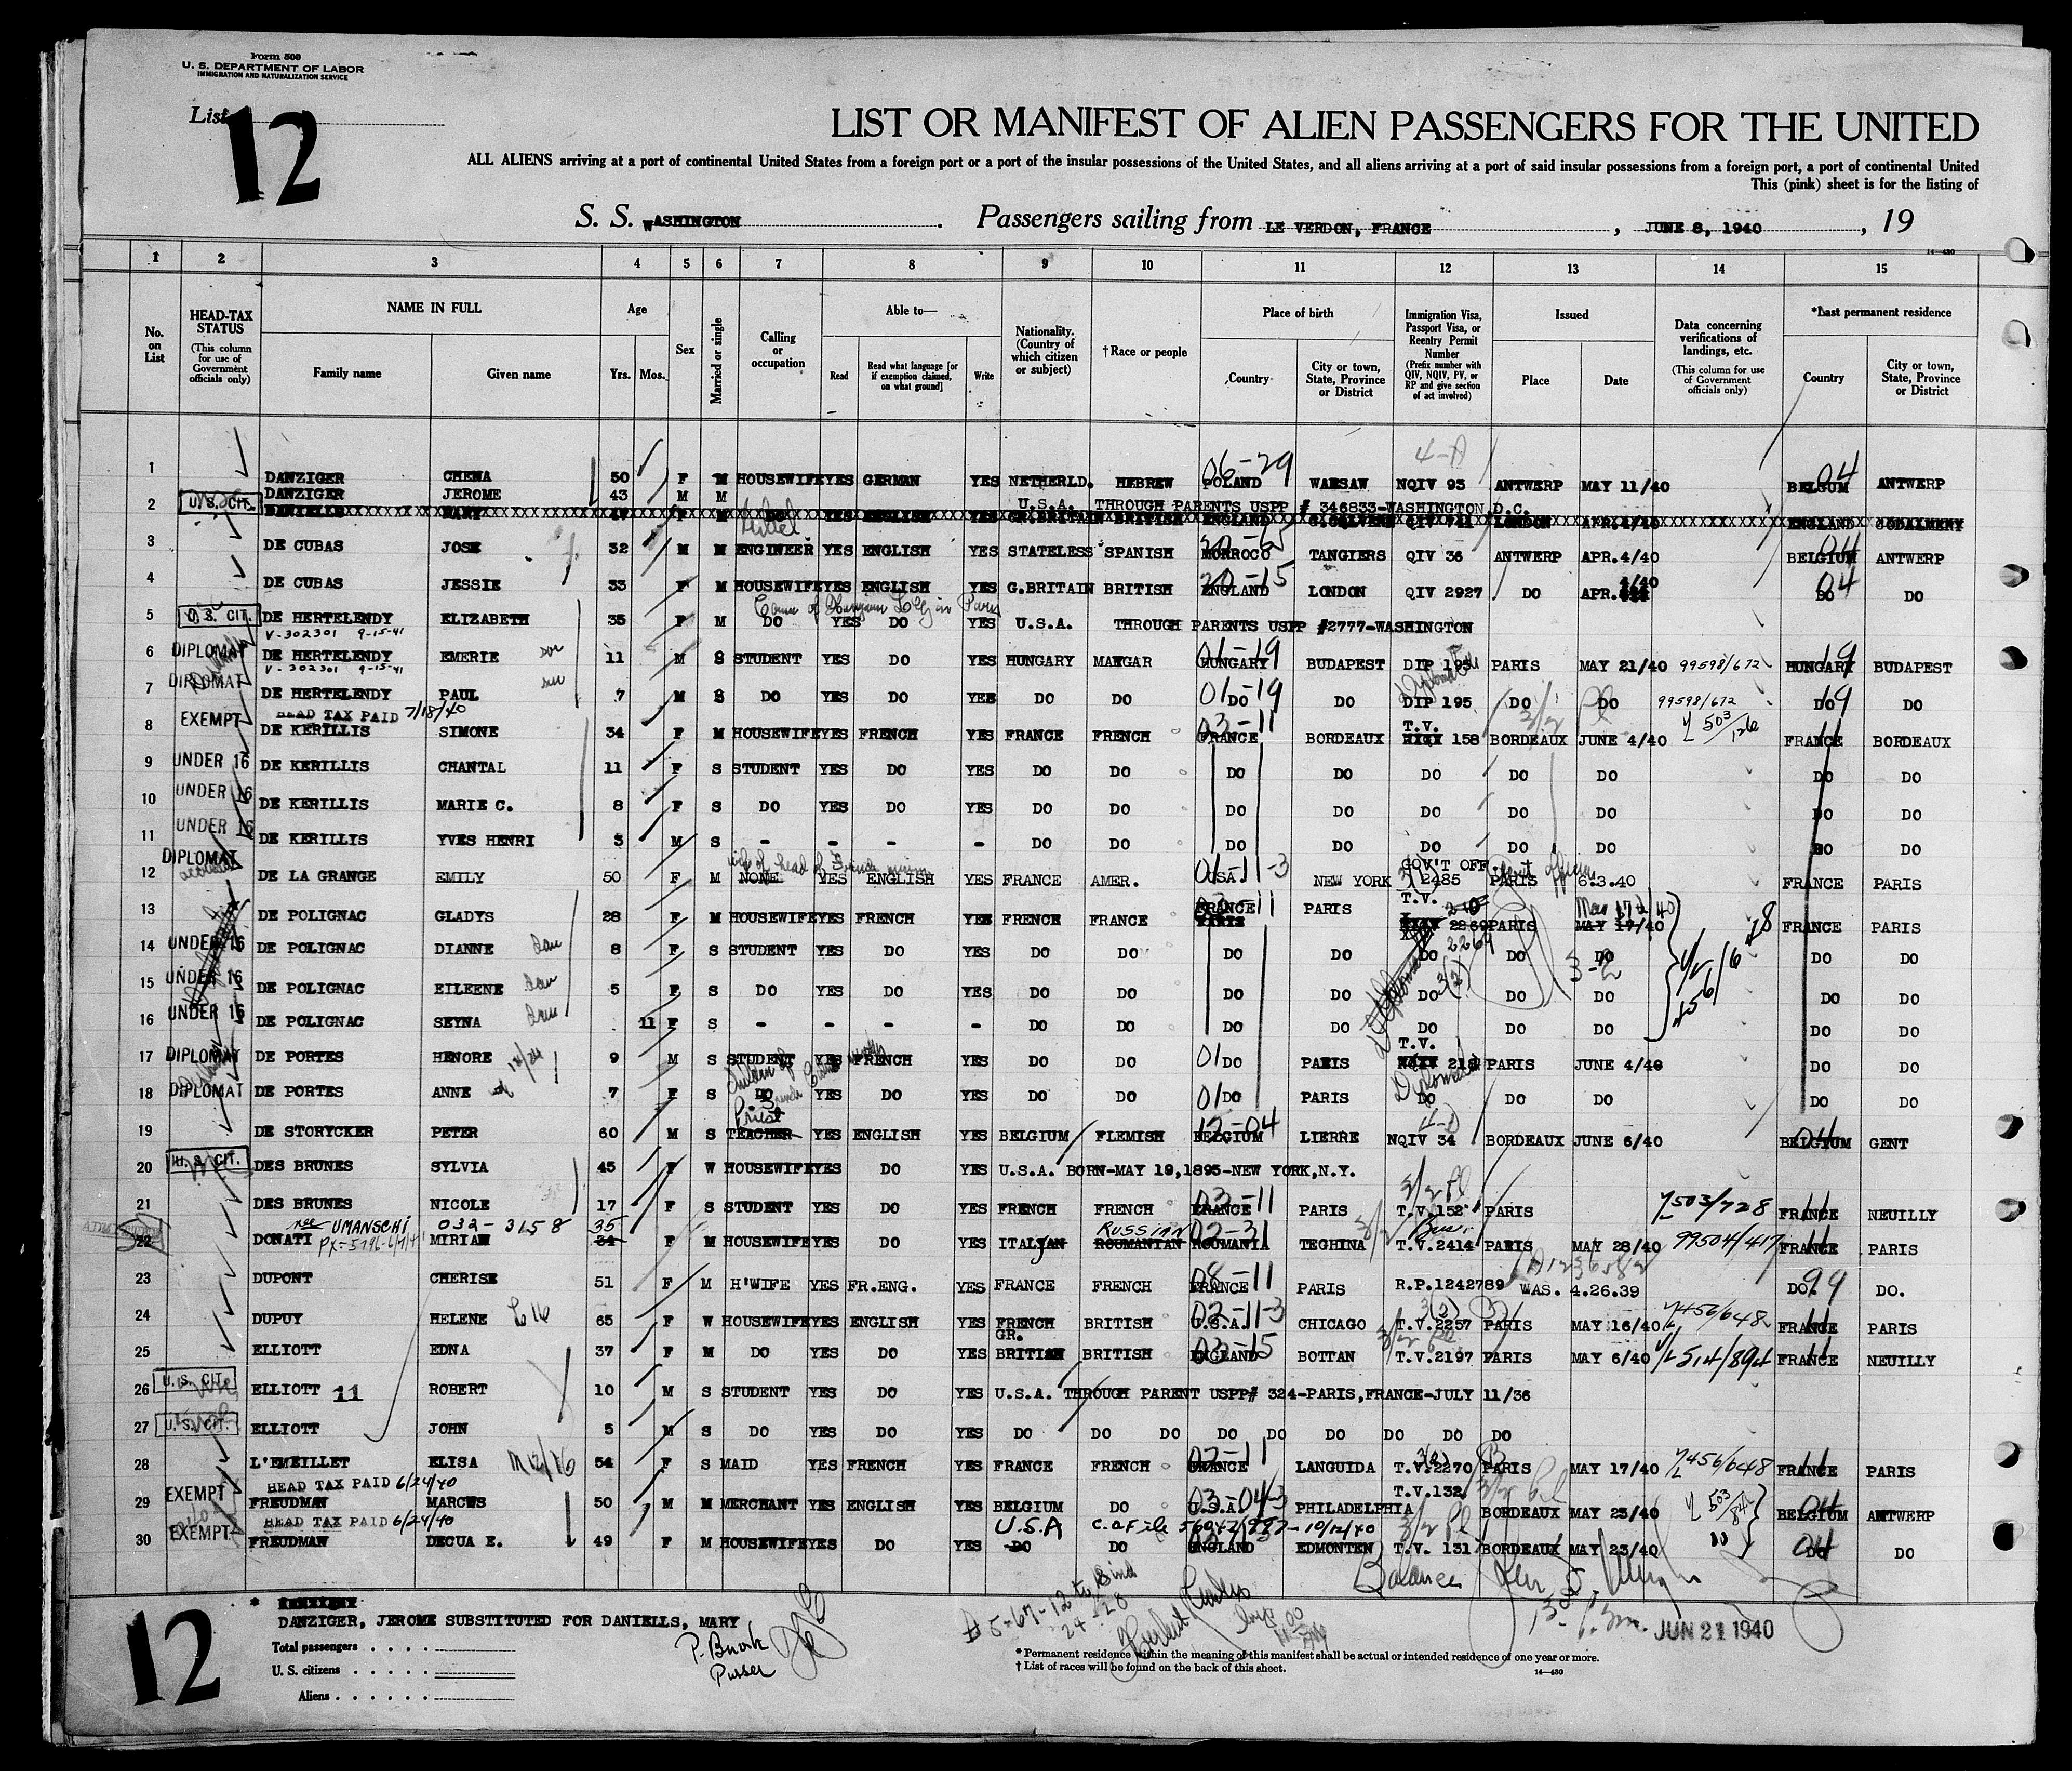 Form 500
U. S. DEPARTMENT OF LABOR
IMMIGRATION AND NATURALIZATION SERVICE
List 12
LIST OR MANIFEST OF ALIEN PASSENGERS FOR THE UNITED
ALL ALIENS arriving at a port of continental United States from a foreign port or a port of the insular possessions of the United States, and all aliens arriving at a port of said insular possessions from a foreign port, a port of continental United
This (pink) sheet is for the listing of
S. S. WASHINGTON. Passengers sailing from LE VERDON, FRANCE, JUNE 8, 1940, 19
14—430
1 2 3 4 5 6 7 8 9 10 11 12 13 14 15
No. on List
HEAD-TAX STATUS (This column for use of Government officials only)
NAME IN FULL
Family name Given name
Age
Yrs. Mos.
Sex
Married or single
Calling or occupation
Able to—
Read Read what language [or if exemption claimed, on what ground] Write
Nationality. (Country of which citizen or subject)
† Race or people
Place of birth
Country City or town, State, Province or District
Immigration Visa, Passport Visa, or Reentry Permit Number (Prefix number with QIV, NQIV, PV, or RP and give section of act involved)
Issued
Place Date
Data concerning verifications of landings, etc. (This column for use of Government officials only)
*Last permanent residence
Country City or town, State, Province or District
4-D
06-29 04
1 DANZIGER CHEMA 50 F M HOUSEWIFE YES GERMAN YES NETHERLD. HEBREW POLAND WARSAW NQIV 93 ANTWERP MAY 11/40 BELGUM ANTWERP
DANZIGER JEROME 43 M M U.S.A. THROUGH PARENTS USPP # 346833-WASHINGTON D.C.
2 U.S. CIT. DANIELLS MARY F M DO YES ENGLISH YES GR.BRITAIN BRITISH ENGLAND QIV LONDON APR.4/40 ENGLAND
3 DE CUBAS JOSE 32 M M ENGINEER YES ENGLISH YES STATELESS SPANISH MORROCO TANGIERS QIV 36 ANTWERP APR.4/40 BELGIUM ANTWERP
20-15 04
4 DE CUBAS JESSIE 33 F M HOUSEWIFE YES ENGLISH YES G.BRITAIN BRITISH ENGLAND LONDON QIV 2927 DO APR. 4/40 DO DO
5 U.S. CIT. DE HERTELENDY ELIZABETH 35 F M DO YES DO YES U.S.A. THROUGH PARENTS USPP #2777-WASHINGTON
V-302301 9-15-41
01-19 19
6 DIPLOMAT DE HERTELENDY EMERIE son 11 M S STUDENT YES DO YES HUNGARY MAYGAR HUNGARY BUDAPEST DIP 195 PARIS MAY 21/40 99598/672 HUNGARY BUDAPEST
V-302301 9-15-41
7 DIPLOMAT DE HERTELENDY PAUL 7 M S DO YES DO YES DO DO 01 DO-19 DO DIP 195 DO DO 99598/672 DO 19 DO
HEAD TAX PAID 7/18/40
03-11 T.V. 503/126
8 EXEMPT DE KERILLIS SIMONE 34 F M HOUSEWIFE YES FRENCH YES FRANCE FRENCH FRANCE BORDEAUX 158 BORDEAUX JUNE 4/40 FRANCE BORDEAUX
9 UNDER 16 DE KERILLIS CHANTAL 11 F S STUDENT YES DO YES DO DO DO DO DO DO DO DO DO
10 UNDER 16 DE KERILLIS MARIE C. 8 F S DO YES DO YES DO DO DO DO DO DO DO DO DO
11 UNDER 16 DE KERILLIS YVES HENRI 3 M S - - - - DO DO DO DO DO DO DO DO DO
wife of head of
01-11-3 GOV'T OFF.
12 DIPLOMAT DE LA GRANGE EMILY 50 F M NONE YES ENGLISH YES FRANCE AMER. USA. NEW YORK 2485 PARIS 6.3.40 FRANCE PARIS
FRANCE T.V.
13 DE POLIGNAC GLADYS 28 F M HOUSEWIFE YES FRENCH YES FRENCH FRANCE PARIS PARIS 2269 PARIS MAY 17/40 FRANCE PARIS
14 UNDER 16 DE POLIGNAC DIANNE dau 8 F S STUDENT YES DO YES DO DO DO DO DO DO DO DO DO
3-2
15 UNDER 16 DE POLIGNAC EILEENE dau 5 F S DO YES DO YES DO DO DO DO DO DO DO DO DO
16 UNDER 16 DE POLIGNAC SEYNA dau 11 F S - - - - DO DO DO DO DO DO DO DO DO
T.V.
17 DIPLOMAT DE PORTES HENORE 9 M S STUDENT YES FRENCH YES DO DO 01 DO PARIS PARIS JUNE 4/40 DO DO
18 DIPLOMAT DE PORTES ANNE 7 F S DO YES DO YES DO DO 01 DO PARIS DO DO DO DO DO
Priest
12-04 4-D
19 DE STORYCKER PETER 60 M S TEACHER YES ENGLISH YES BELGIUM FLEMISH BELGIUM LIERRE NQIV 34 BORDEAUX JUNE 6/40 BELGIUM GENT
20 U.S. CIT. DES BRUNES SYLVIA 45 F W HOUSEWIFE YES DO YES U.S.A. BORN-MAY 19,1895-NEW YORK,N.Y.
03-11 503/728 11
21 DES BRUNES NICOLE 17 F S STUDENT YES DO YES FRENCH FRENCH FRANCE PARIS T.V.152 PARIS FRANCE NEUILLY
nee UMANSCHI 032-3158 35 RUSSIAN 02-31
22 DONATI MIRIAM 34 F M HOUSEWIFE YES DO YES ITALIAN ROUMANIAN ROUMANIA TEGHINA T.V.2414 PARIS MAY 28/40 99504/417 FRANCE PARIS
08-11 99
23 DUPONT CHERISE 51 F M H'WIFE YES FR.ENG. YES FRANCE FRENCH FRANCE PARIS R.P.1242789 WAS. 4.26.39 DO. DO.
02-11-3 3(2) 456/648
24 DUPUY HELENE 65 F W HOUSEWIFE YES ENGLISH YES FRENCH BRITISH U.S.A. CHICAGO T.V.2257 PARIS MAY 16/40 FRANCE PARIS
GR. 03-15
25 ELLIOTT EDNA 37 F M DO YES DO YES BRITIAN BRITISH ENGLAND BOTTAN T.V.2197 PARIS MAY 6/40 514/894 FRANCE NEUILLY
26 U.S. CIT. ELLIOTT 11 ROBERT 10 M S STUDENT YES DO YES U.S.A. THROUGH PARENT USPP# 324-PARIS,FRANCE-JULY 11/36
27 U.S. CIT. ELLIOTT JOHN 5 M S DO YES DO YES DO DO DO DO DO DO DO DO DO
02-11 3(2)
28 L'EMEILLET ELISA 54 F S MAID YES FRENCH YES FRANCE FRENCH FRANCE LANGUIDA T.V.2270 PARIS MAY 17/40 456/648 FRANCE PARIS
HEAD TAX PAID 6/24/40 03-04-3 T.V.132
29 EXEMPT FREUDMAN MARCUS 50 M M MERCHANT YES ENGLISH YES BELGIUM DO U.S.A. PHILADELPHIA BORDEAUX MAY 23/40 503/84 BELGIUM ANTWERP
HEAD TAX PAID 6/24/40 U.S.A
30 EXEMPT FREUDMAN DECUA E. 49 F M HOUSEWIFE YES DO YES DO DO ENGLAND EDMONTEN T.V. 131 BORDEAUX MAY 23/40 04 DO
*
DANZIGER, JEROME SUBSTITUTED FOR DANIELLS, MARY
Total passengers . . . .
U. S. citizens . . . . .
Aliens . . . . . .
12
Purser
JUN 21 1940
* Permanent residence within the meaning of this manifest shall be actual or intended residence of one year or more.
† List of races will be found on the back of this sheet.
14—430